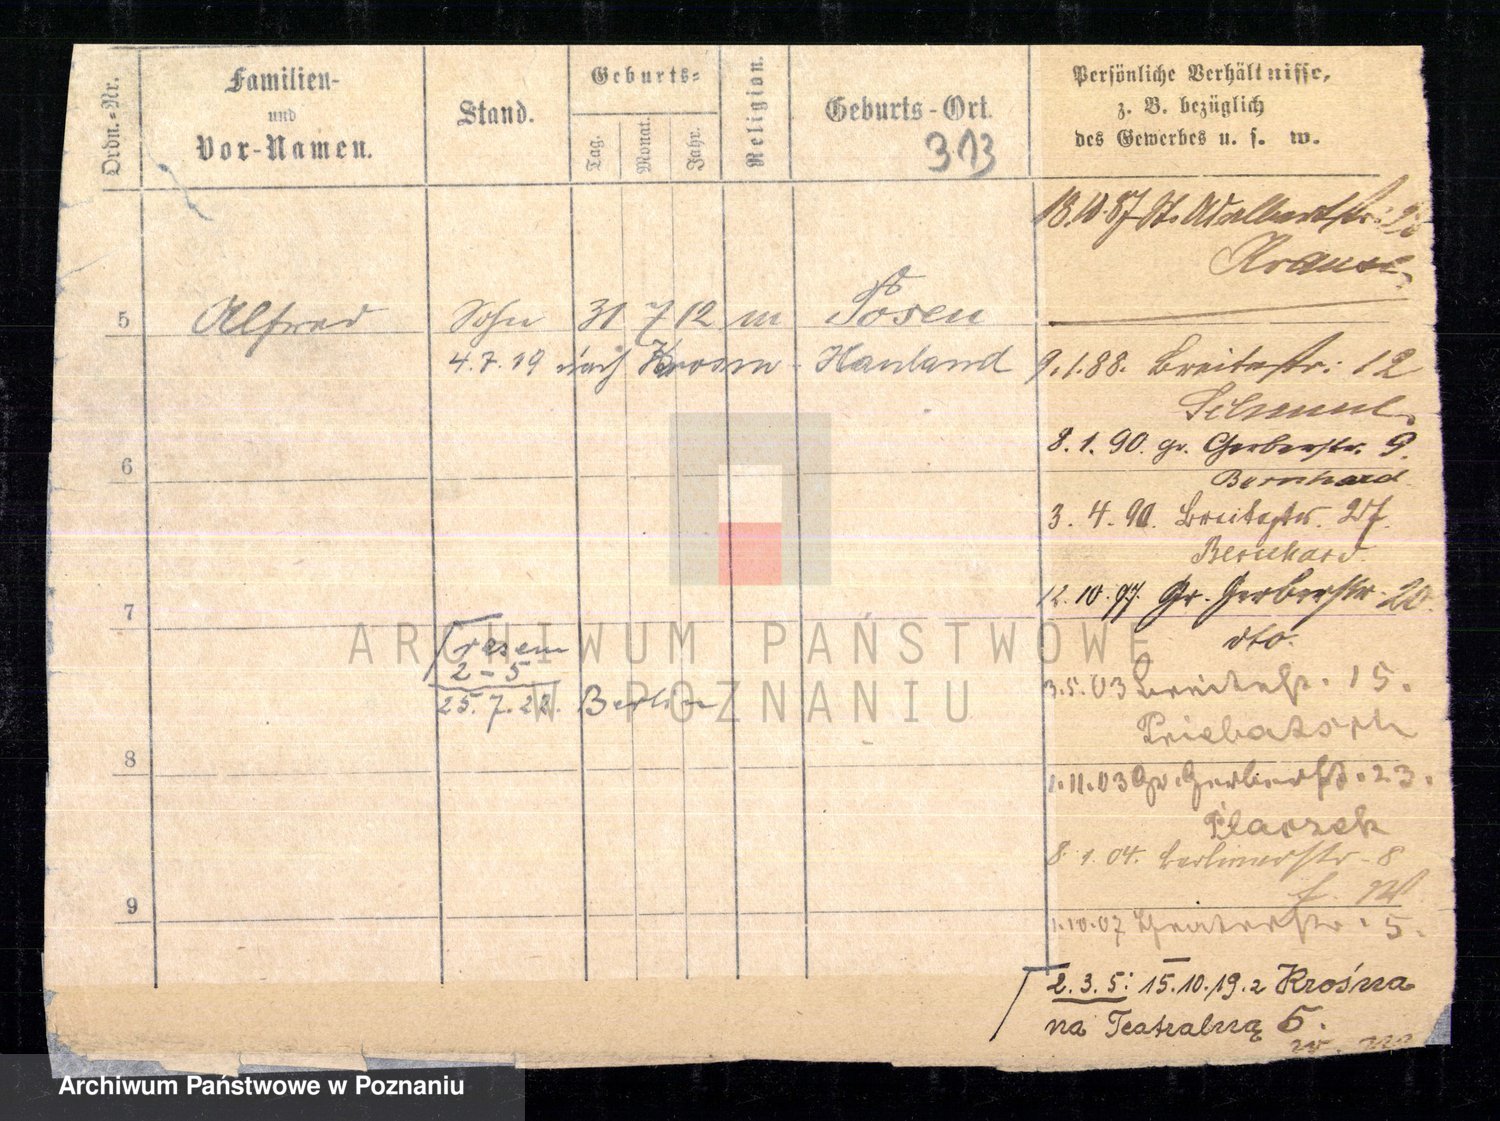 Ordn.-Nr.
Familien-
und
Vor-Namen.
Stand.
Geburts-
Tag.
Monat.
Jahr.
Religion.
Geburts-Ort.
313
Persönliche Verhältnisse,
z. B. bezüglich
des Gewerbes u. s. w.
18.10.87 St. Adalbertstr.
Krause
5 Alfred Sohn 31 7 12 m Posen
4.7.19 nach Krosno - Hauland
9.1.88. Breitestr. 12
8.1.90. gr. Gerberstr. 9.
Bernhard
3.4.90. Breitestr. 27.
Bernhard
6
7
12.10.97. Gr. Gerberstr. 20.
dto.
resem
2-5
25.7.22. Berlin
3.5.03 Breitestr. 15.
Priebatsch
8
1.11.03 Gr. Gerberstr. 23.
Placzek
8.1.04. Berlinerstr. 8
9
1.10.07 Theaterstr. 5.
2.3.5: 15.10.19. z Krośna
na Teatralną 5.
ARCHIWUM PAŃSTWOWE
W POZNANIU
Archiwum Państwowe w Poznaniu